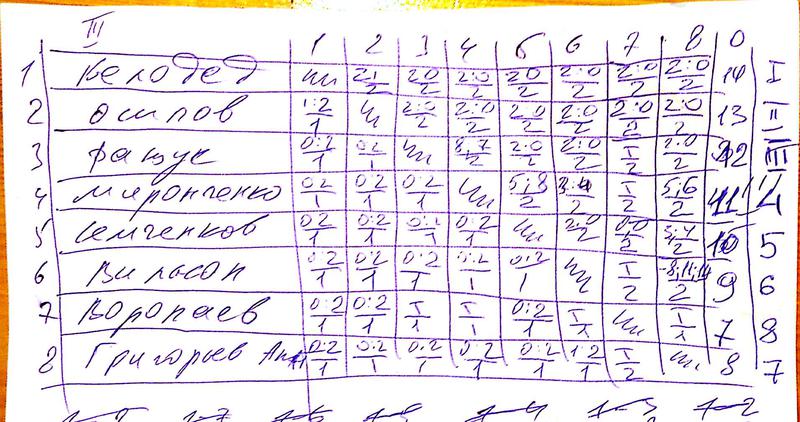 III
1 2 3 4 5 6 7 8 О
1 Келодед 2:1/2 2:0/2 2:0/2 2:0/2 2:0/2 2:0/2 2:0/2 14 I
2 Осипов 1:2/1 2:0/2 2:0/2 2:0/2 2:0/2 2:0/2 2:0/2 13 II
3 Фащук 0:2/1 0:2/1 8,7/2 2:0/2 2:0/2 I/2 2:0/2 12 III
4 Миронченко 0:2/1 0:2/1 0:2/1 5;8/2 I/2 5;6/2 11 4
5 Семченков 0:2/1 0:2/1 0:2/1 0:2/1 2:0/2 0:0/2 10 5
6 Вильсон 0:2/1 0:2/1 0:2/1 0:2/1 0:2/1 I/2 -8;11;14/2 9 6
7 Воропаев 0:2/1 0:2/1 I/1 I/1 0:2/1 I/1 I/1 7 8
8 Григорьев 0:2/1 0:2/1 0:2/1 0:2/1 0:2/1 1:2/1 I/2 8 7